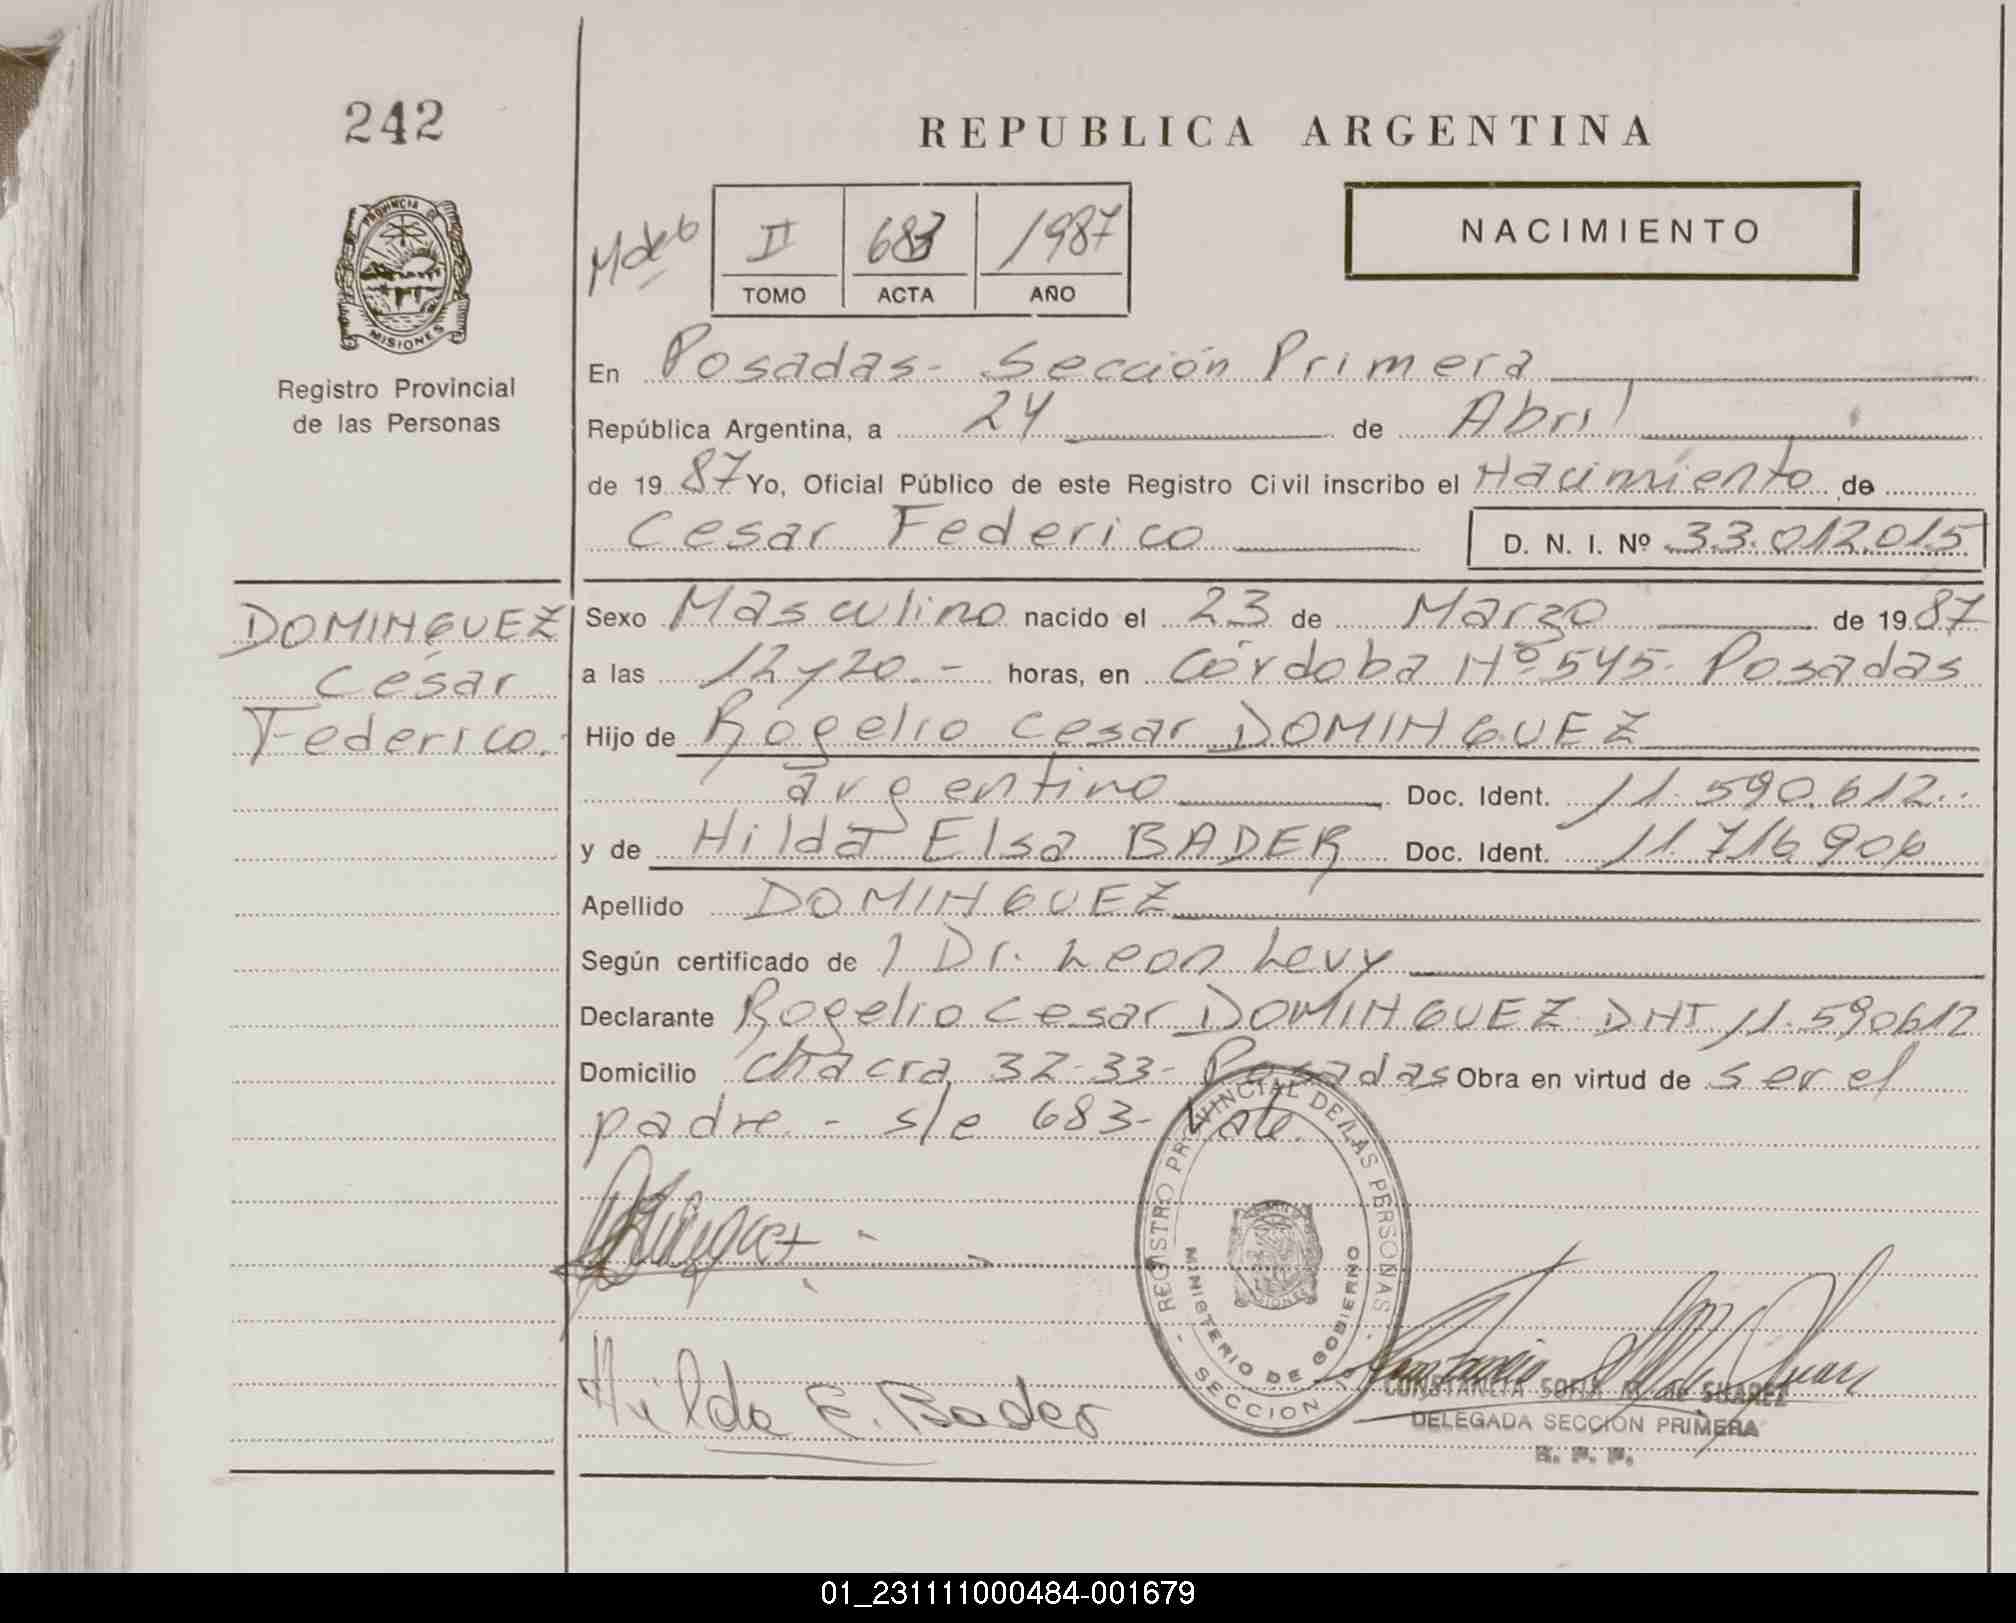 242
REPUBLICA ARGENTINA
PROVINCIA DE
MISIONES
Registro Provincial
de las Personas
II 683 1987
TOMO ACTA AÑO
NACIMIENTO
En Posadas- Sección Primera
República Argentina, a 24 de Abril
de 1987 Yo, Oficial Público de este Registro Civil inscribo el Nacimiento de
Cesar Federico D. N. I. Nº 33.012.015
DOMINGUEZ
César
Federico.
Sexo Masculino nacido el 23 de Marzo de 1987
a las 12y20.- horas, en Córdoba Nº 545- Posadas
Hijo de Rogelio Cesar DOMINGUEZ
argentino Doc. Ident. 11.590.612..
y de Hilda Elsa BADER Doc. Ident. 11.716906
Apellido DOMINGUEZ
Según certificado de 1 Dr. Leon Levy
Declarante Rogelio Cesar DOMINGUEZ DNI 11.590612
Domicilio chacra 32-33- Posadas Obra en virtud de ser el
padre - s/e 683- Vale.
REGISTRO PROVINCIAL DE LAS PERSONAS
MINISTERIO DE GOBIERNO
SECCION
MISIONES
Hilda E. Bader
CONSTANCIA SOFIA M. de SUAREZ
DELEGADA SECCION PRIMERA
R. P. P.
01_231111000484-001679